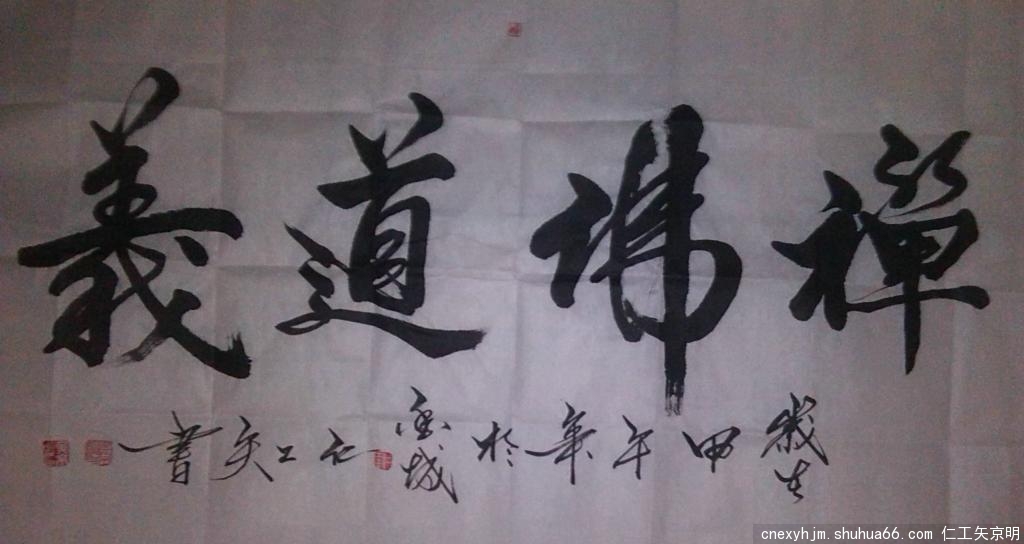 禅佛道義
歲在甲午年於香城仁工矢書
cnexyhjm.shuhua66.com 仁工矢京明